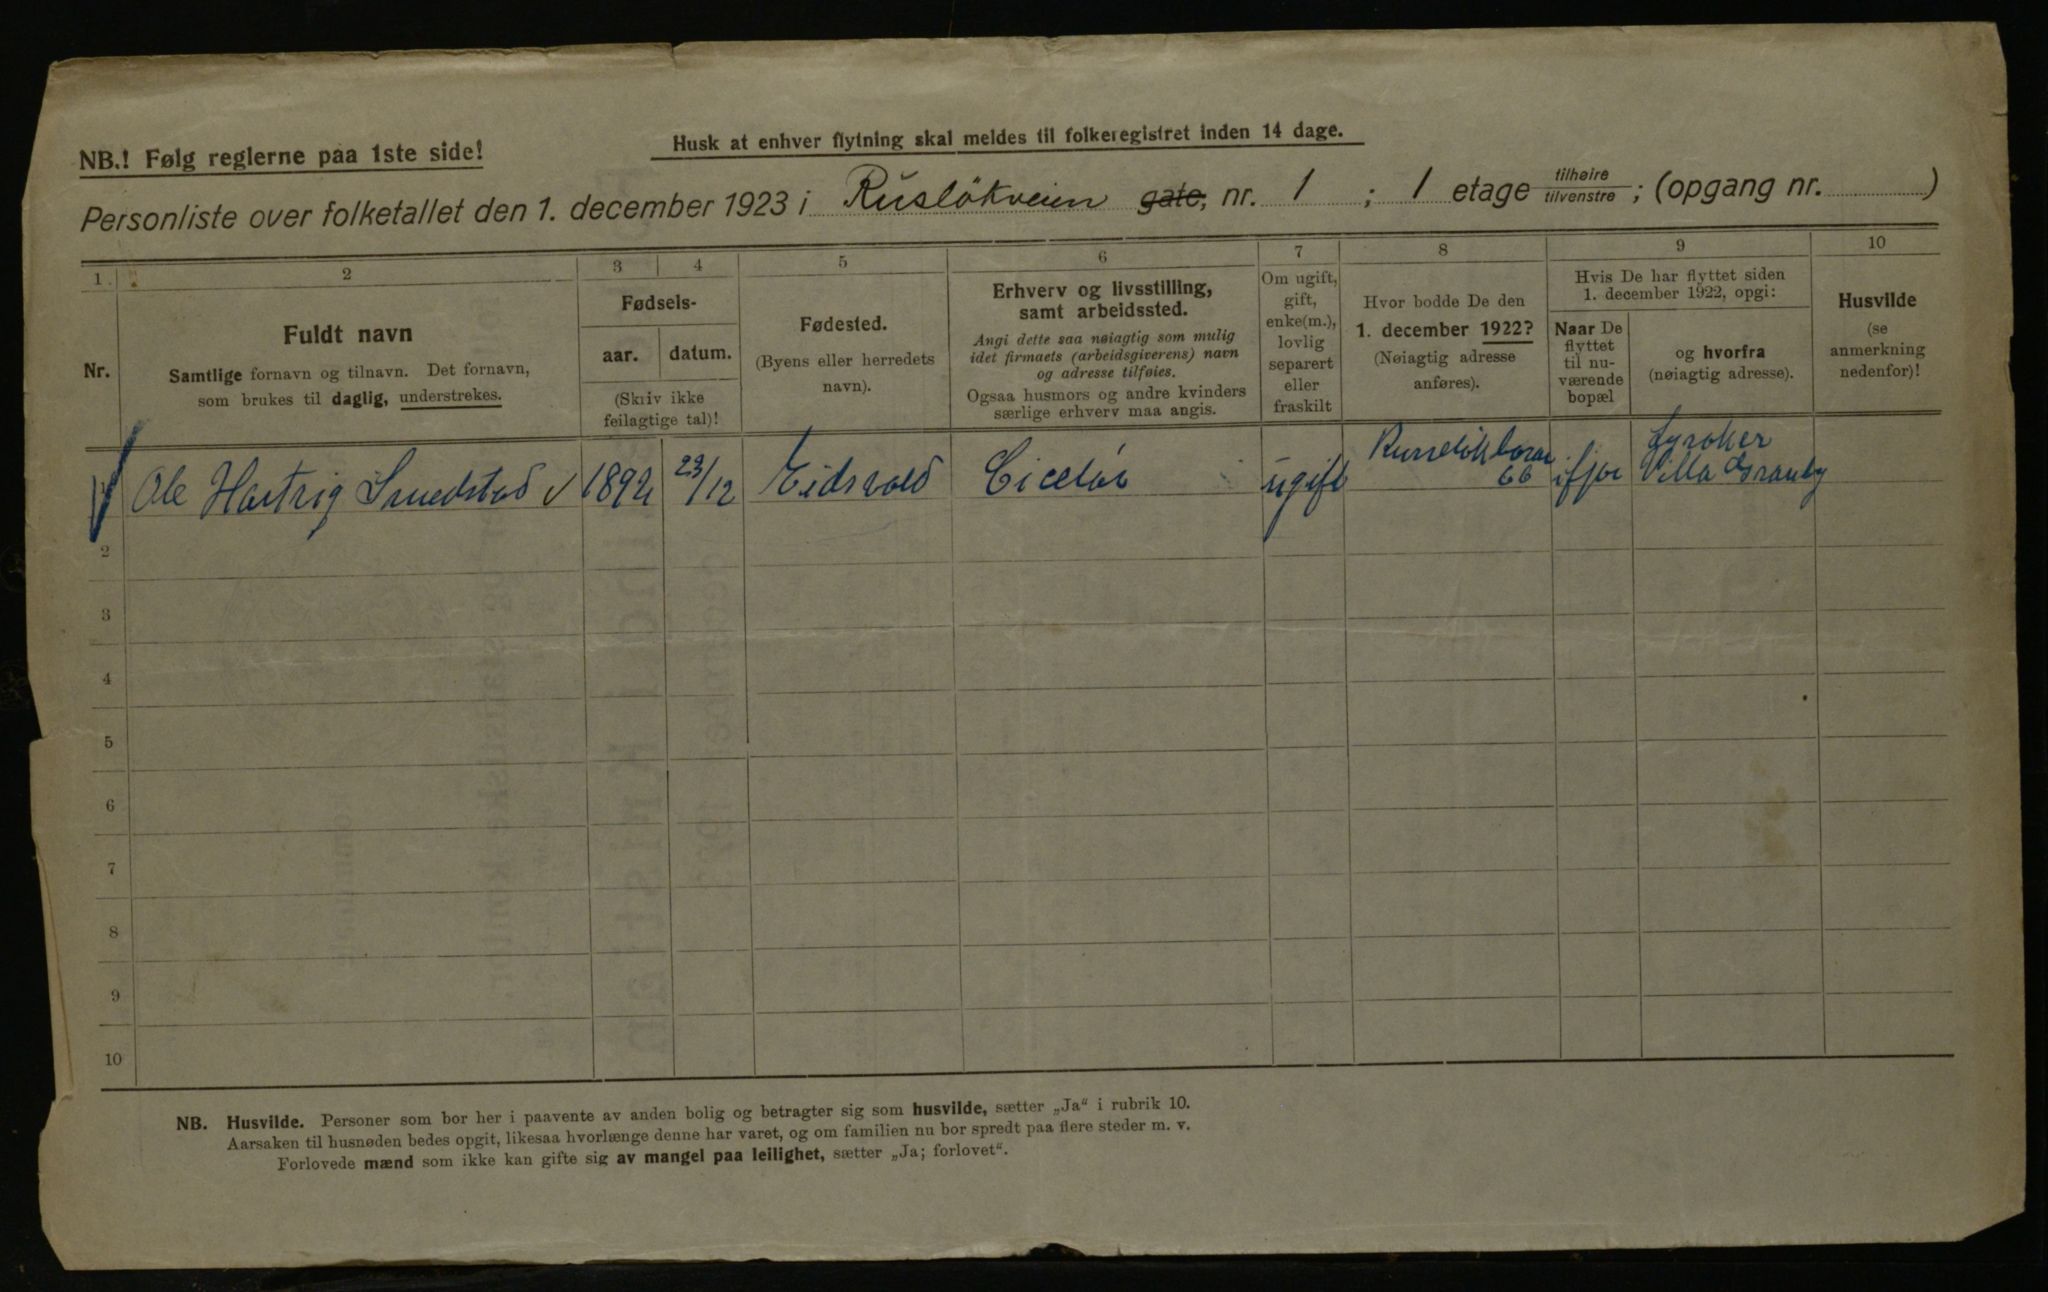 NB.! Følg reglerne paa 1ste side!
Husk at enhver flytning skal meldes til folkeregistret inden 14 dage.
Personliste over folketallet den 1. december 1923 i Rusløkveien gate, nr. 1 ; 1 etage tilhøire tilvenstre ; (opgang nr. )
1 2 3 4 5 6 7 8 9 10
Nr.
Fuldt navn
Samtlige fornavn og tilnavn. Det fornavn,
som brukes til daglig, understrekes.
Fødsels-
aar. datum.
(Skriv ikke
feilagtige tal)!
Fødested.
(Byens eller herredets
navn).
Erhverv og livsstilling,
samt arbeidssted.
Angi dette saa nøiagtig som mulig
idet firmaets (arbeidsgiverens) navn
og adresse tilføies.
Ogsaa husmors og andre kvinders
særlige erhverv maa angis.
Om ugift,
gift,
enke(m.),
lovlig
separert
eller
fraskilt
Hvor bodde De den
1. december 1922?
(Nøiagtig adresse
anføres).
Hvis De har flyttet siden
1. december 1922, opgi:
Naar De
flyttet
til nu-
værende
bopæl
og hvorfra
(nøiagtig adresse).
Husvilde
(se
anmerkning
nedenfor)!
1 Ole Hartvig Smedstad v 1892 23/12 Eidsvold ugift 66 ifjor Lysaker
Villa Granly
2
3
4
5
6
7
8
9
10
NB. Husvilde. Personer som bor her i paavente av anden bolig og betragter sig som husvilde, sætter „Ja“ i rubrik 10.
Aarsaken til husnøden bedes opgit, likesaa hvorlænge denne har varet, og om familien nu bor spredt paa flere steder m. v.
Forlovede mænd som ikke kan gifte sig av mangel paa leilighet, sætter „Ja; forlovet“.